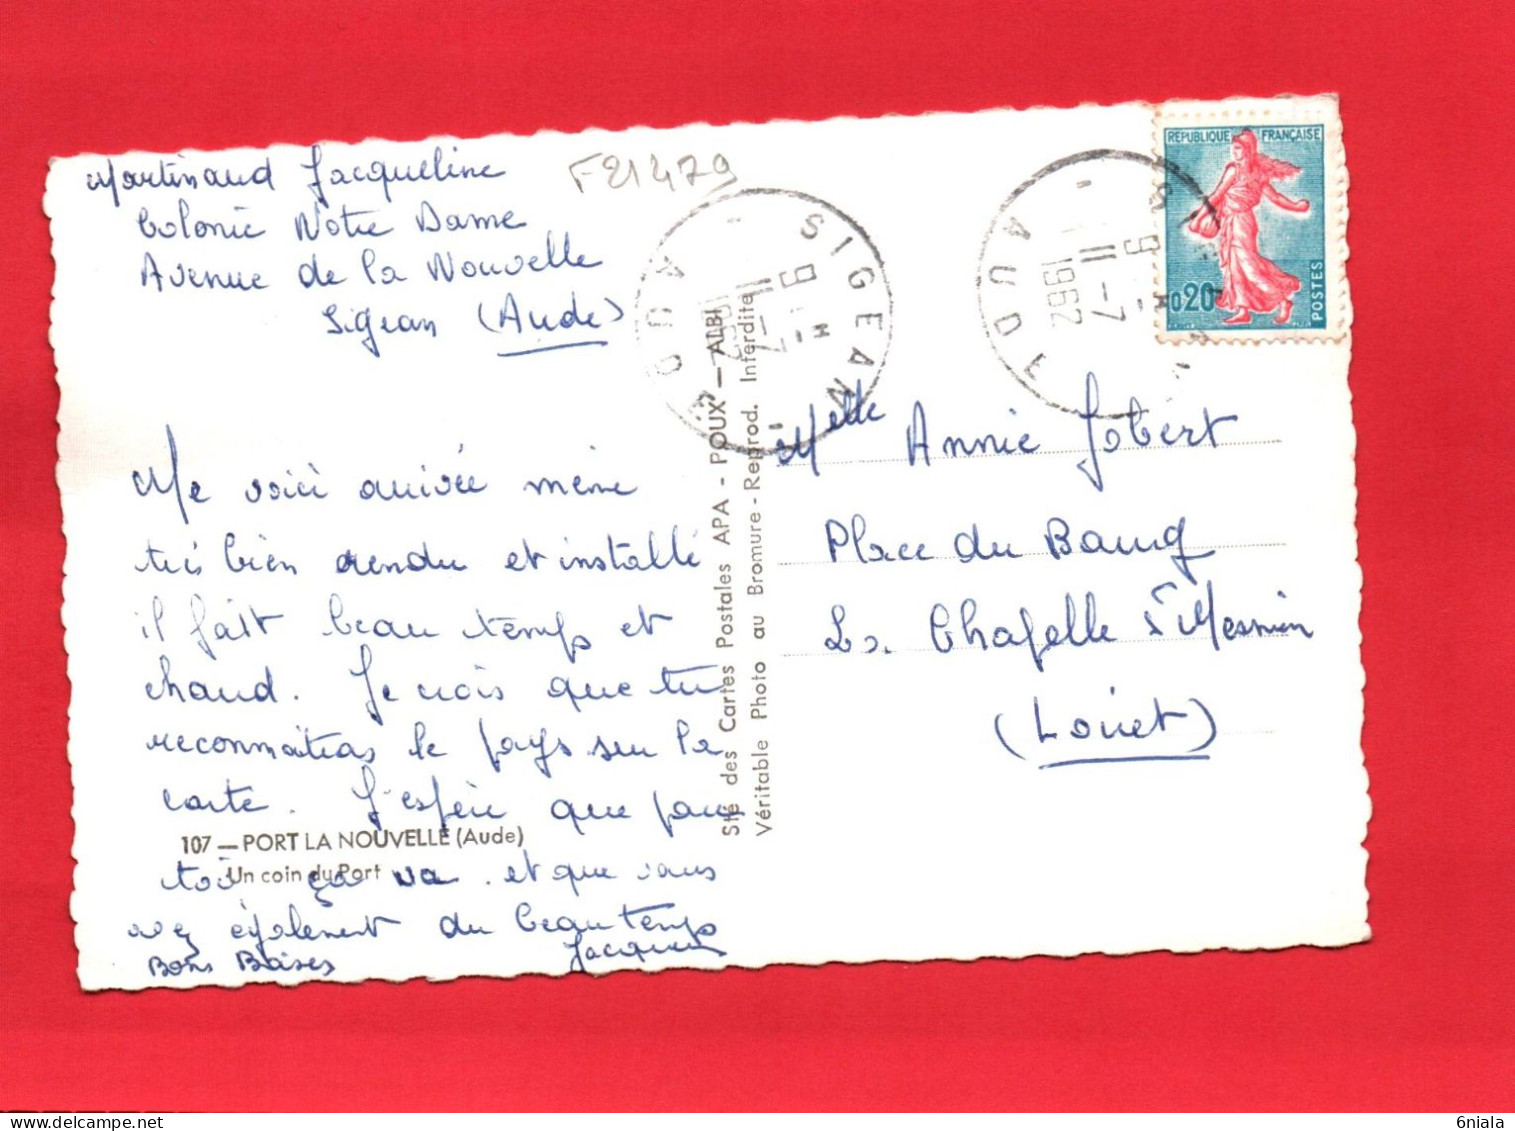 Martinaud Jacqueline
Colonie Notre Dame
Avenue de la Nouvelle
Sigean (Aude)
F21479
Me voici arrivée même
très bien rendu et installé
il fait beau temps et
chaud. Je crois que tu
reconnaitras le pays sur la
carte. J'espère que pour
toi ça va et que vous
avez également du beau temps
Bons Baises
107 — PORT LA NOUVELLE (Aude)
Un coin du Port
Sté des Cartes Postales APA - POUX — ALBI
Véritable Photo au Bromure - Reprod. Interdite
SIGEAN
9 H
11 - 7
1962
AUDE
9 H
11 - 7
1962
AUDE
REPUBLIQUE FRANÇAISE
0,20
POSTES
Melle Annie Jobert
Place du Bourg
La Chapelle St Mesmin
(Loiret)
6niala